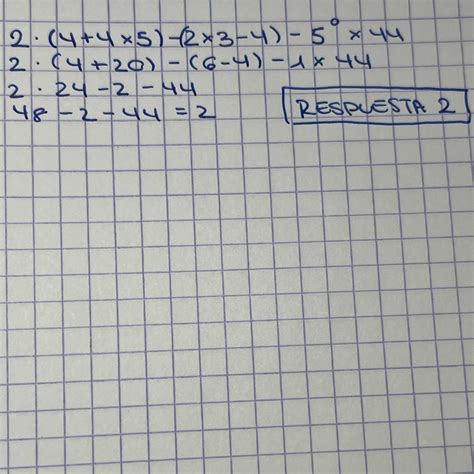 2 · (4+4×5) -(2×3-4) - 5⁰ × 44
2 · (4+20) - (6-4) - 1 × 44
2 · 24 - 2 - 44
48 - 2 - 44 = 2
RESPUESTA 2